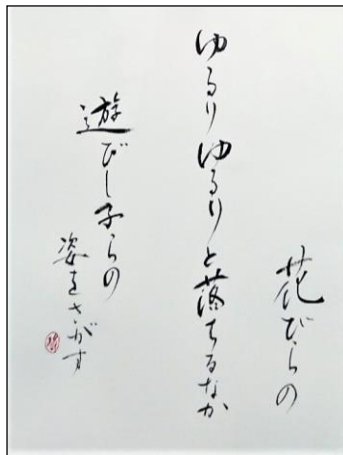 花びらの
ゆるりゆるりと落ちるなか
遊びし子らの
姿をさがす